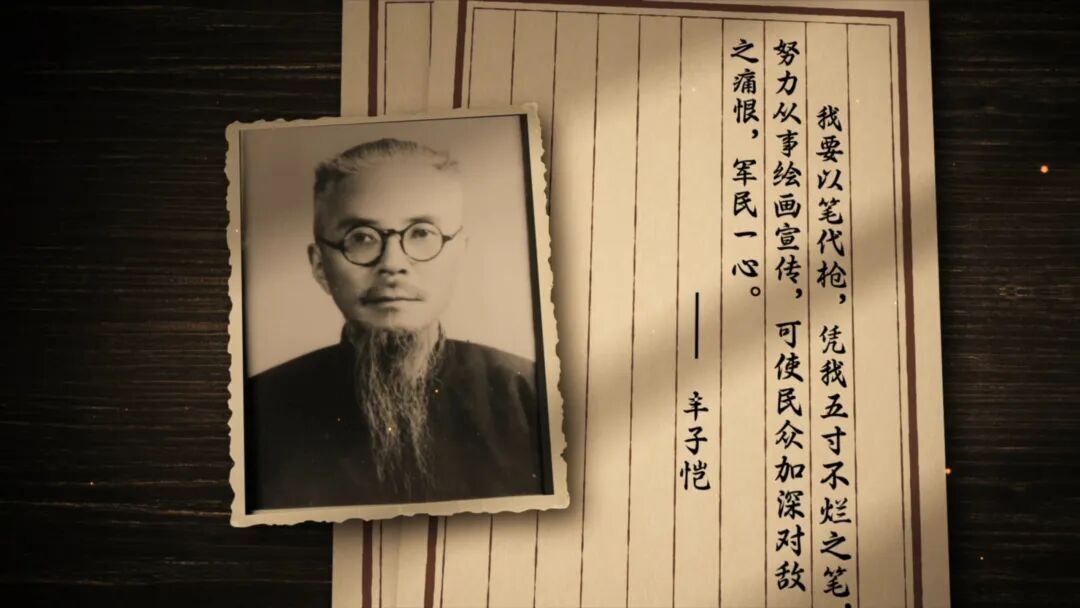 我要以笔代枪，凭我五寸不烂之笔，
努力从事绘画宣传，可使民众加深对敌
之痛恨，军民一心。
——丰子恺